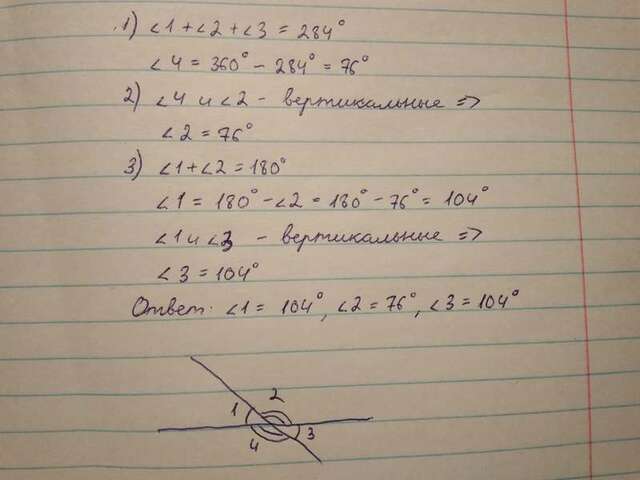 1) ∠1+∠2+∠3 = 284°
∠4 = 360° - 284° = 76°
2) ∠4 и ∠2 - вертикальные =>
∠2 = 76°
3) ∠1+∠2 = 180°
∠1 = 180° - ∠2 = 180° - 76° = 104°
∠1 и ∠3 - вертикальные =>
∠3 = 104°
Ответ: ∠1 = 104°, ∠2 = 76°, ∠3 = 104°
2
1
3
4